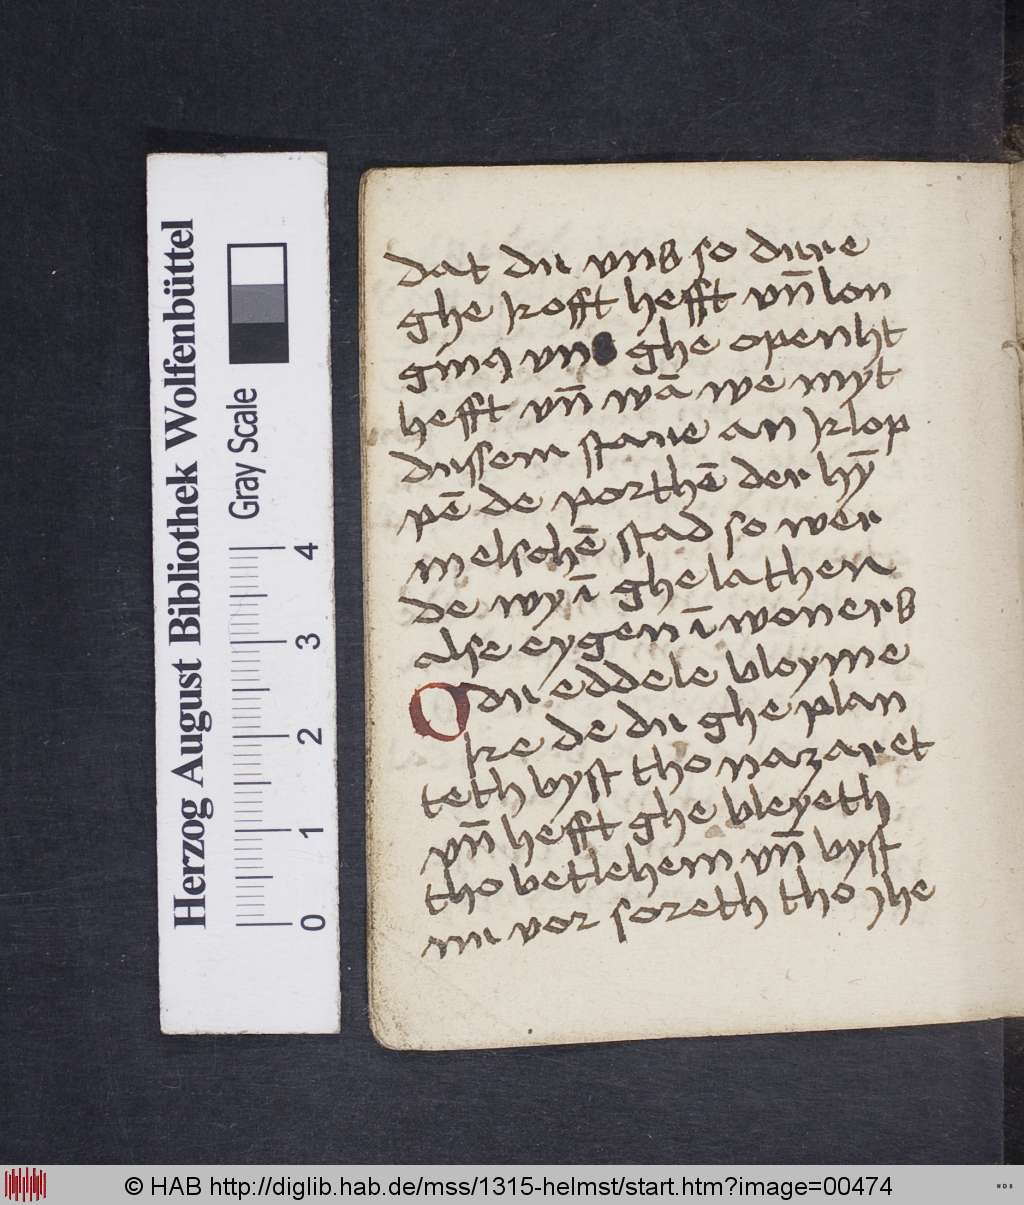 Herzog August Bibliothek Wolfenbüttel
Gray Scale
0 1 2 3 4
dat du vns so dure
ghe kofft hefft vn̄ lon
ginq vns ghe openht
hefft vn̄ wā we myt
dussem staue an klop
pē de porthē der hȳ
melschē stad so wer
de wy ī ghelathen
alse eygen ī woners
O du eddele bloyme
ke de du ghe plan
teth byst tho nazaret
vn̄ hefft ghe bleyeth
tho betlehem vn̄ byst
nu vor soreth tho jhe
© HAB http://diglib.hab.de/mss/1315-helmst/start.htm?image=00474